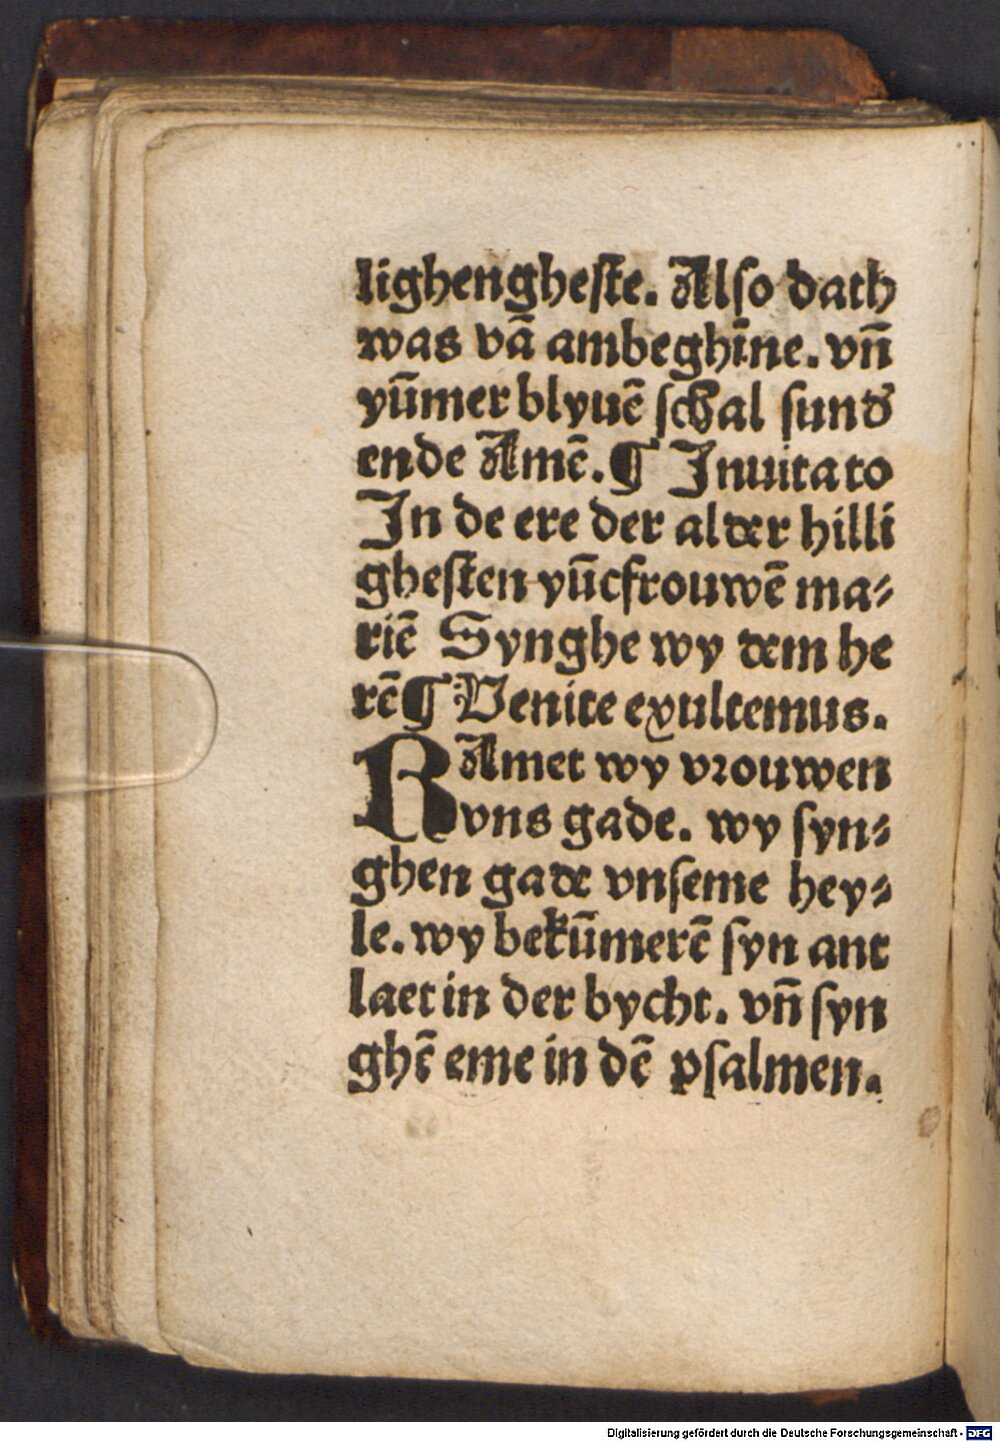 lighengheste. Also dath
was vā ambeghīne. vn̄
yūmer blyuē schal sund
ende Amē. ¶ Inuitato
In de ere der alder hilli
ghesten yūcfrouwē ma⸗
riē Synghe wy dem he
rē ¶ Venite exultemus.
RAmet wy vrouwen
vns gade. wy syn⸗
ghen gade vnseme hey⸗
le. wy bekūmerē syn ant
laet in der bycht. vn̄ syn
ghē eme in dē psalmen.
Digitalisierung gefördert durch die Deutsche Forschungsgemeinschaft - DFG